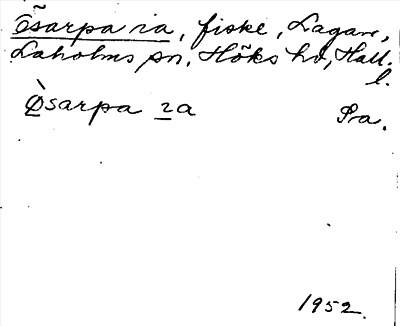 Õsarpa na, fiske, Lagan,
Laholms sn, Höks hd, Hall.
l.
Ò̤sarpa na
Pa.
1952.